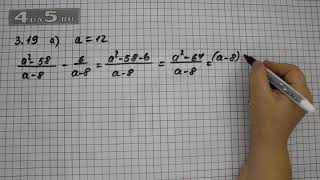 4DA5.RU
3.19 a) a=12
\frac{a²-58}{a-8} - \frac{6}{a-8} = \frac{a²-58-6}{a-8} = \frac{a²-64}{a-8} = (a-8)